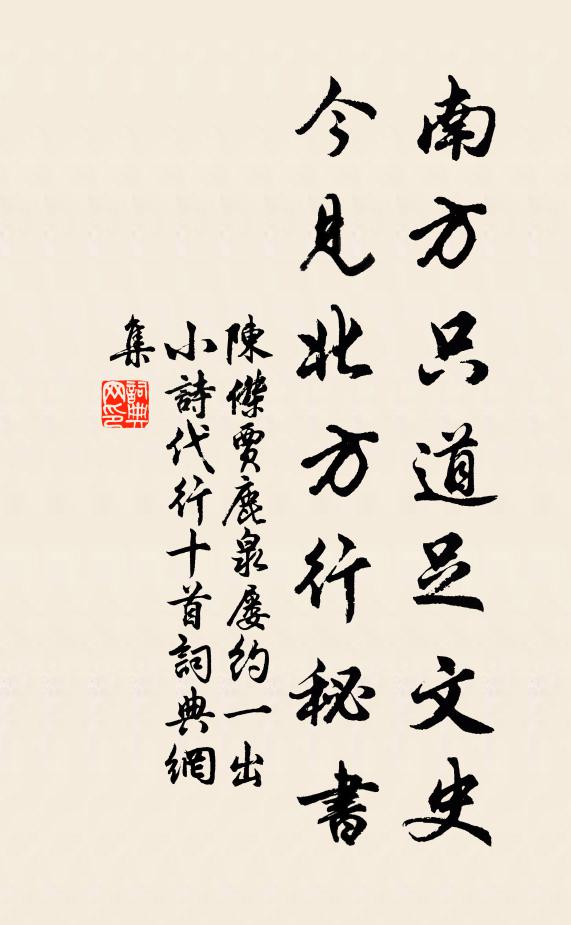 南方只道足文史
今見北方行秘書
陳傑賈鹿泉屡約一出
小詩代行十首詞典網
集
詞典網印